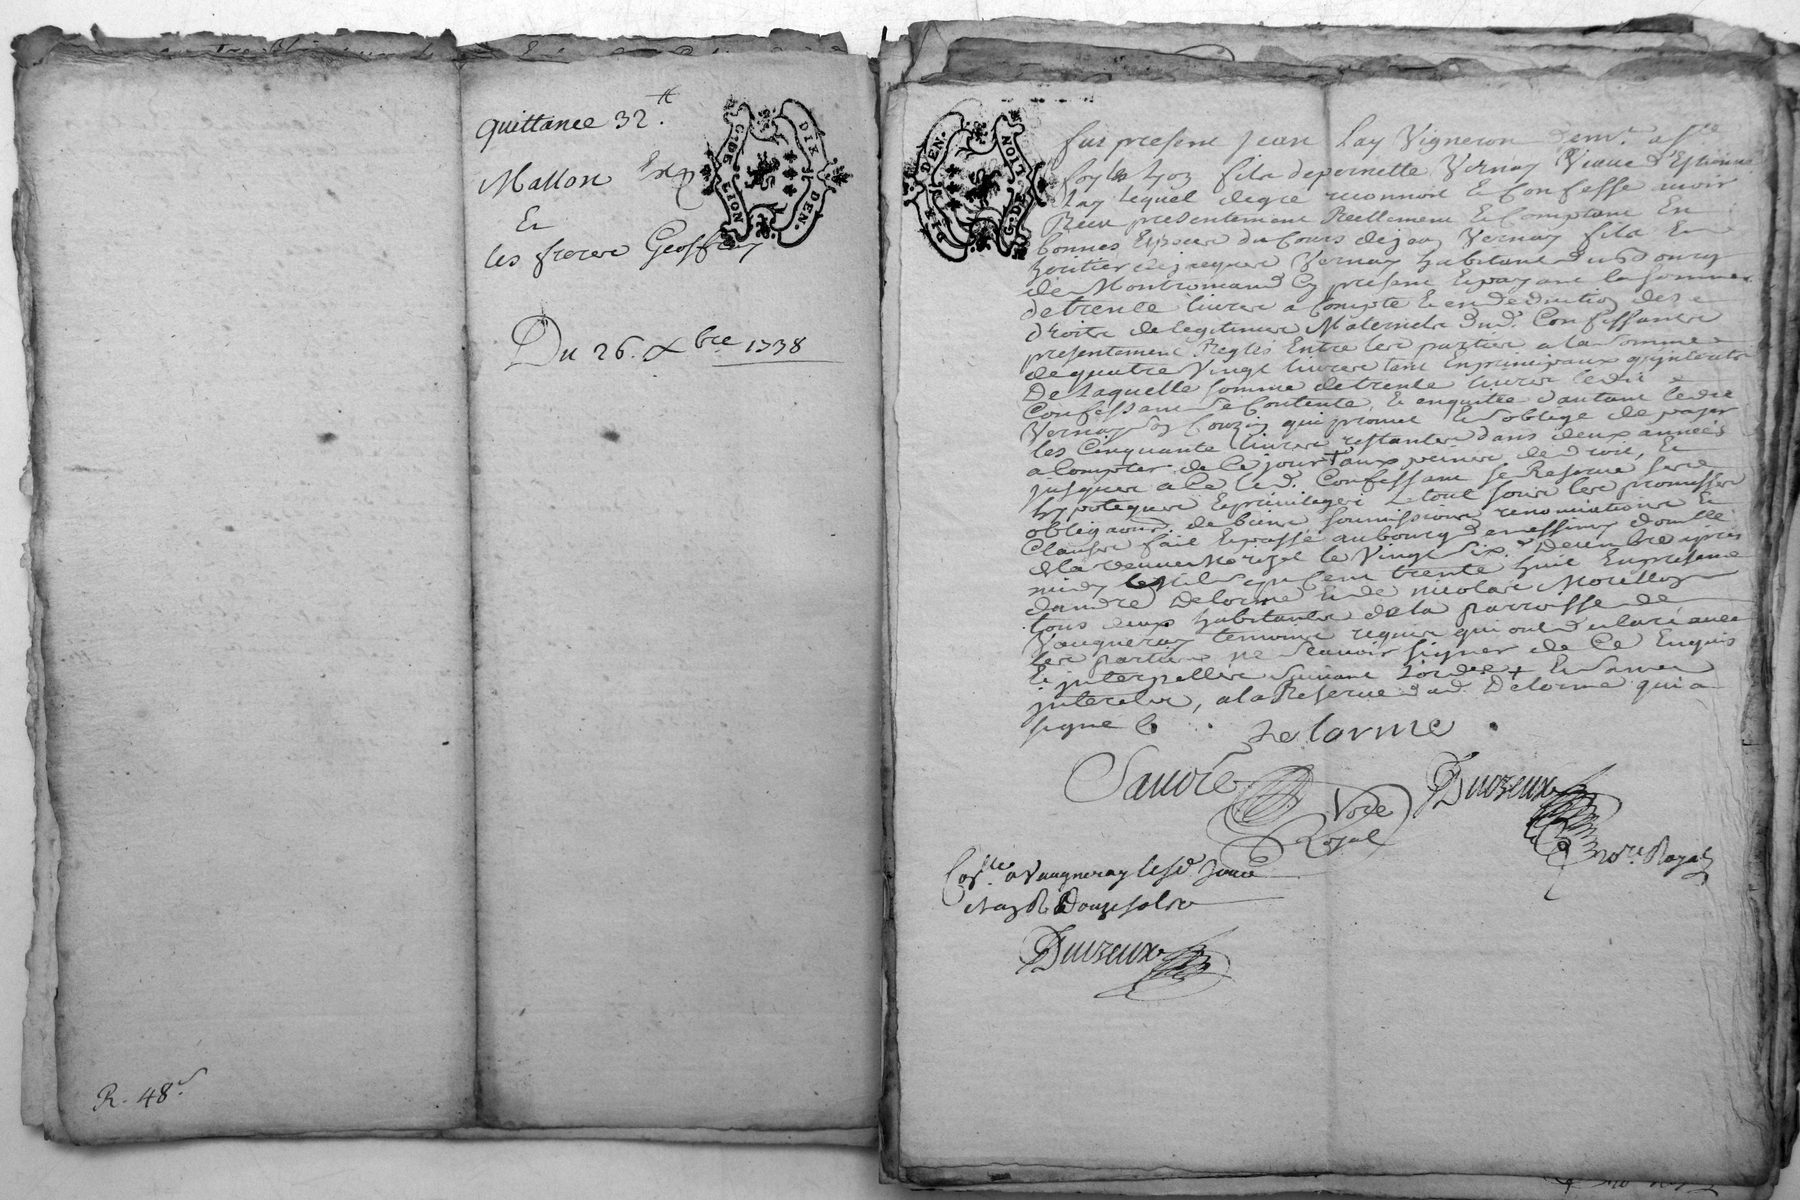 quittance 32.tt
Mallon
Et
les frerere Geoffray
Du 26. Xbre 1738
R. 48s
G. DE LION
DIX DEN.
DIX DEN.
G. DE LION
fut present Jean Lay Vigneron demt. a Ste
foy les Lyon fils de pernette Vernay Veuve d'Estienne
Lay Lequel de gre reconnoit & Confesse avoir
Receu presentement Reellement & Comptant En
bonnes Espece du Cours de jean Vernay fils Et
heritier de jacques Vernay habitant du Bourg
de Montromand Cy present Et payant la somme
de trente livres a Compte & en deduction des
droits de legitime Maternels dud. Confessant
presentement Reglés Entre les parties a la somme
de quatre Vingt livres tant En principaux qu'interets
De Laquelle somme de trente livres ledit
Confessant Se Contente & en quitte d'autant ledit
Vernay son Couzin qui promet & s'oblige de payer
les Cinquante livres restantes dans deux années
a Compter de Ce jour aux peines de droit, Et
jusques a Ce led. Confessant Se Reserve ses
hypoteques & privileges Le tout sous les promesses
obligaons. de biens soumissions renonciations Et
Clauses fait & passé au bourg
le Vingt Six Decembre apres
midy Mil Sept Cent trente huit En presence
d'andré Delorme Et de nicolas Morellon
tous deux habitants de la parroisse de
Vaugneray temoins requis qui ont declaré avec
les parties ne Scavoir signer de Ce Enquis
& interpellés Suivant L'ordce
a la Reserve dud. Delorme qui a
signé
Delorme
Sauvre
Nore
Royal
Duvzeux
nore. Royal
Conlle a Vaugneray le sd.
Reçu Douze sols
Duvzeux